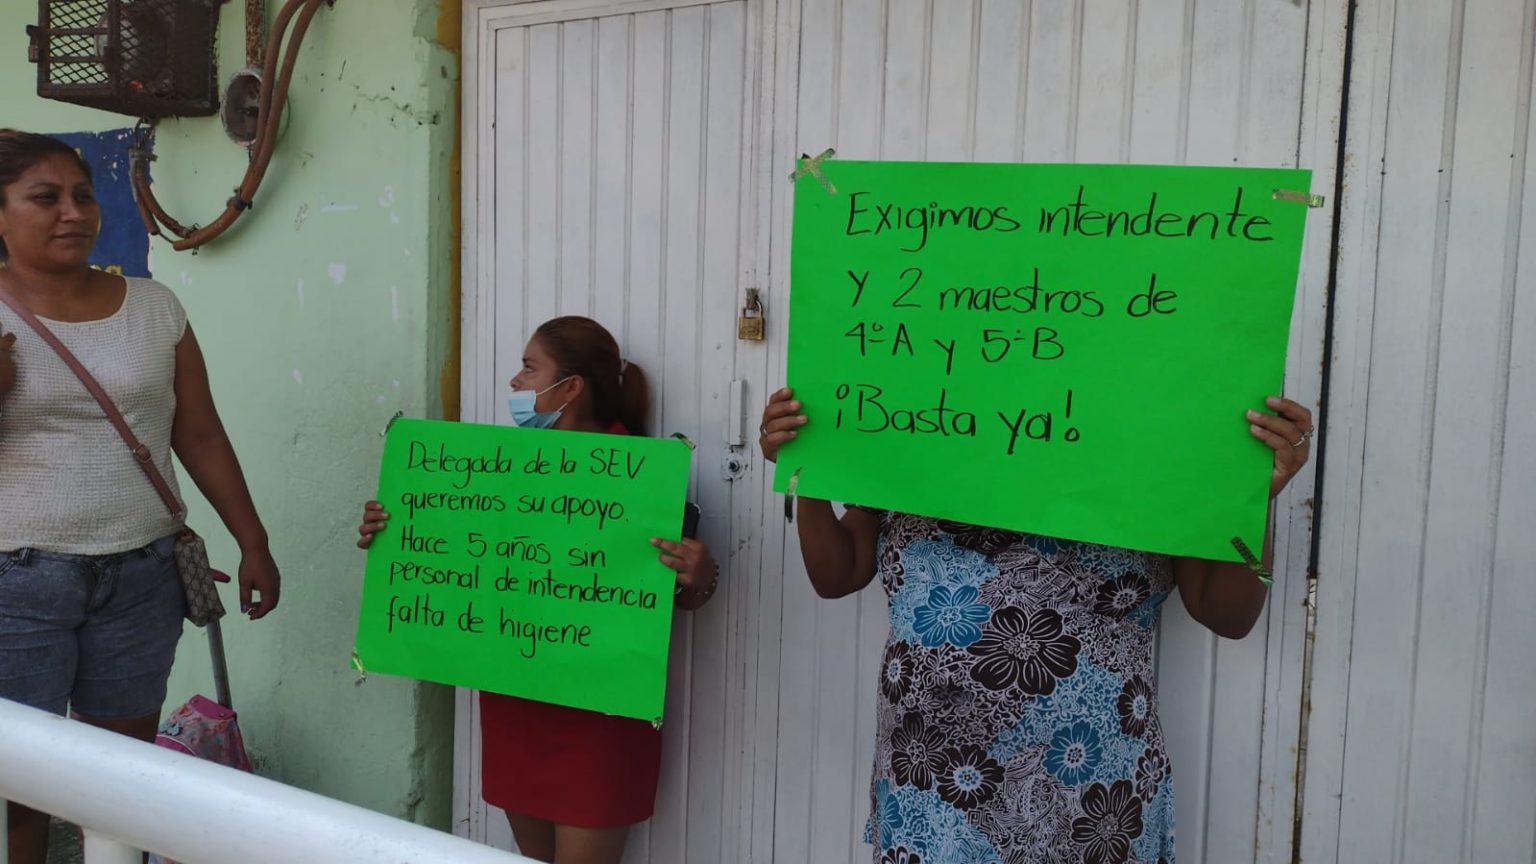 Delegada de la SEV
queremos su apoyo.
Hace 5 años sin
personal de intendencia
falta de higiene
Exigimos intendente
y 2 maestros de
4º A y 5º B
¡Basta ya!